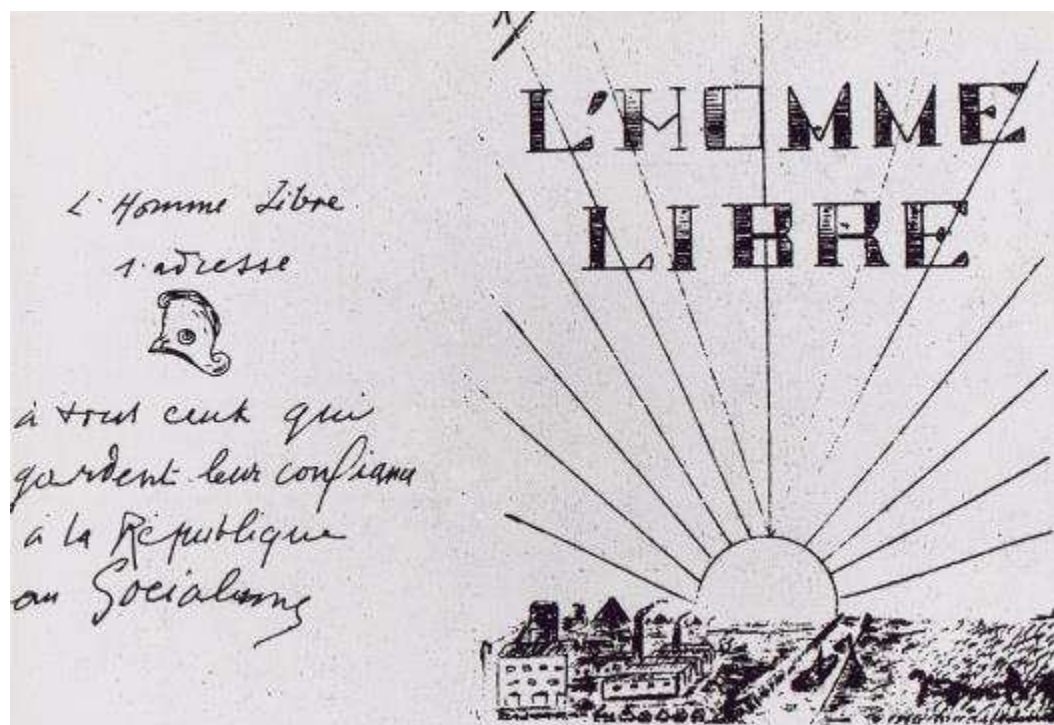 L'Homme Libre
s'adresse
à tous ceux qui
gardent leur confiance
à la République
au Socialisme
L'HOMME
LIBRE